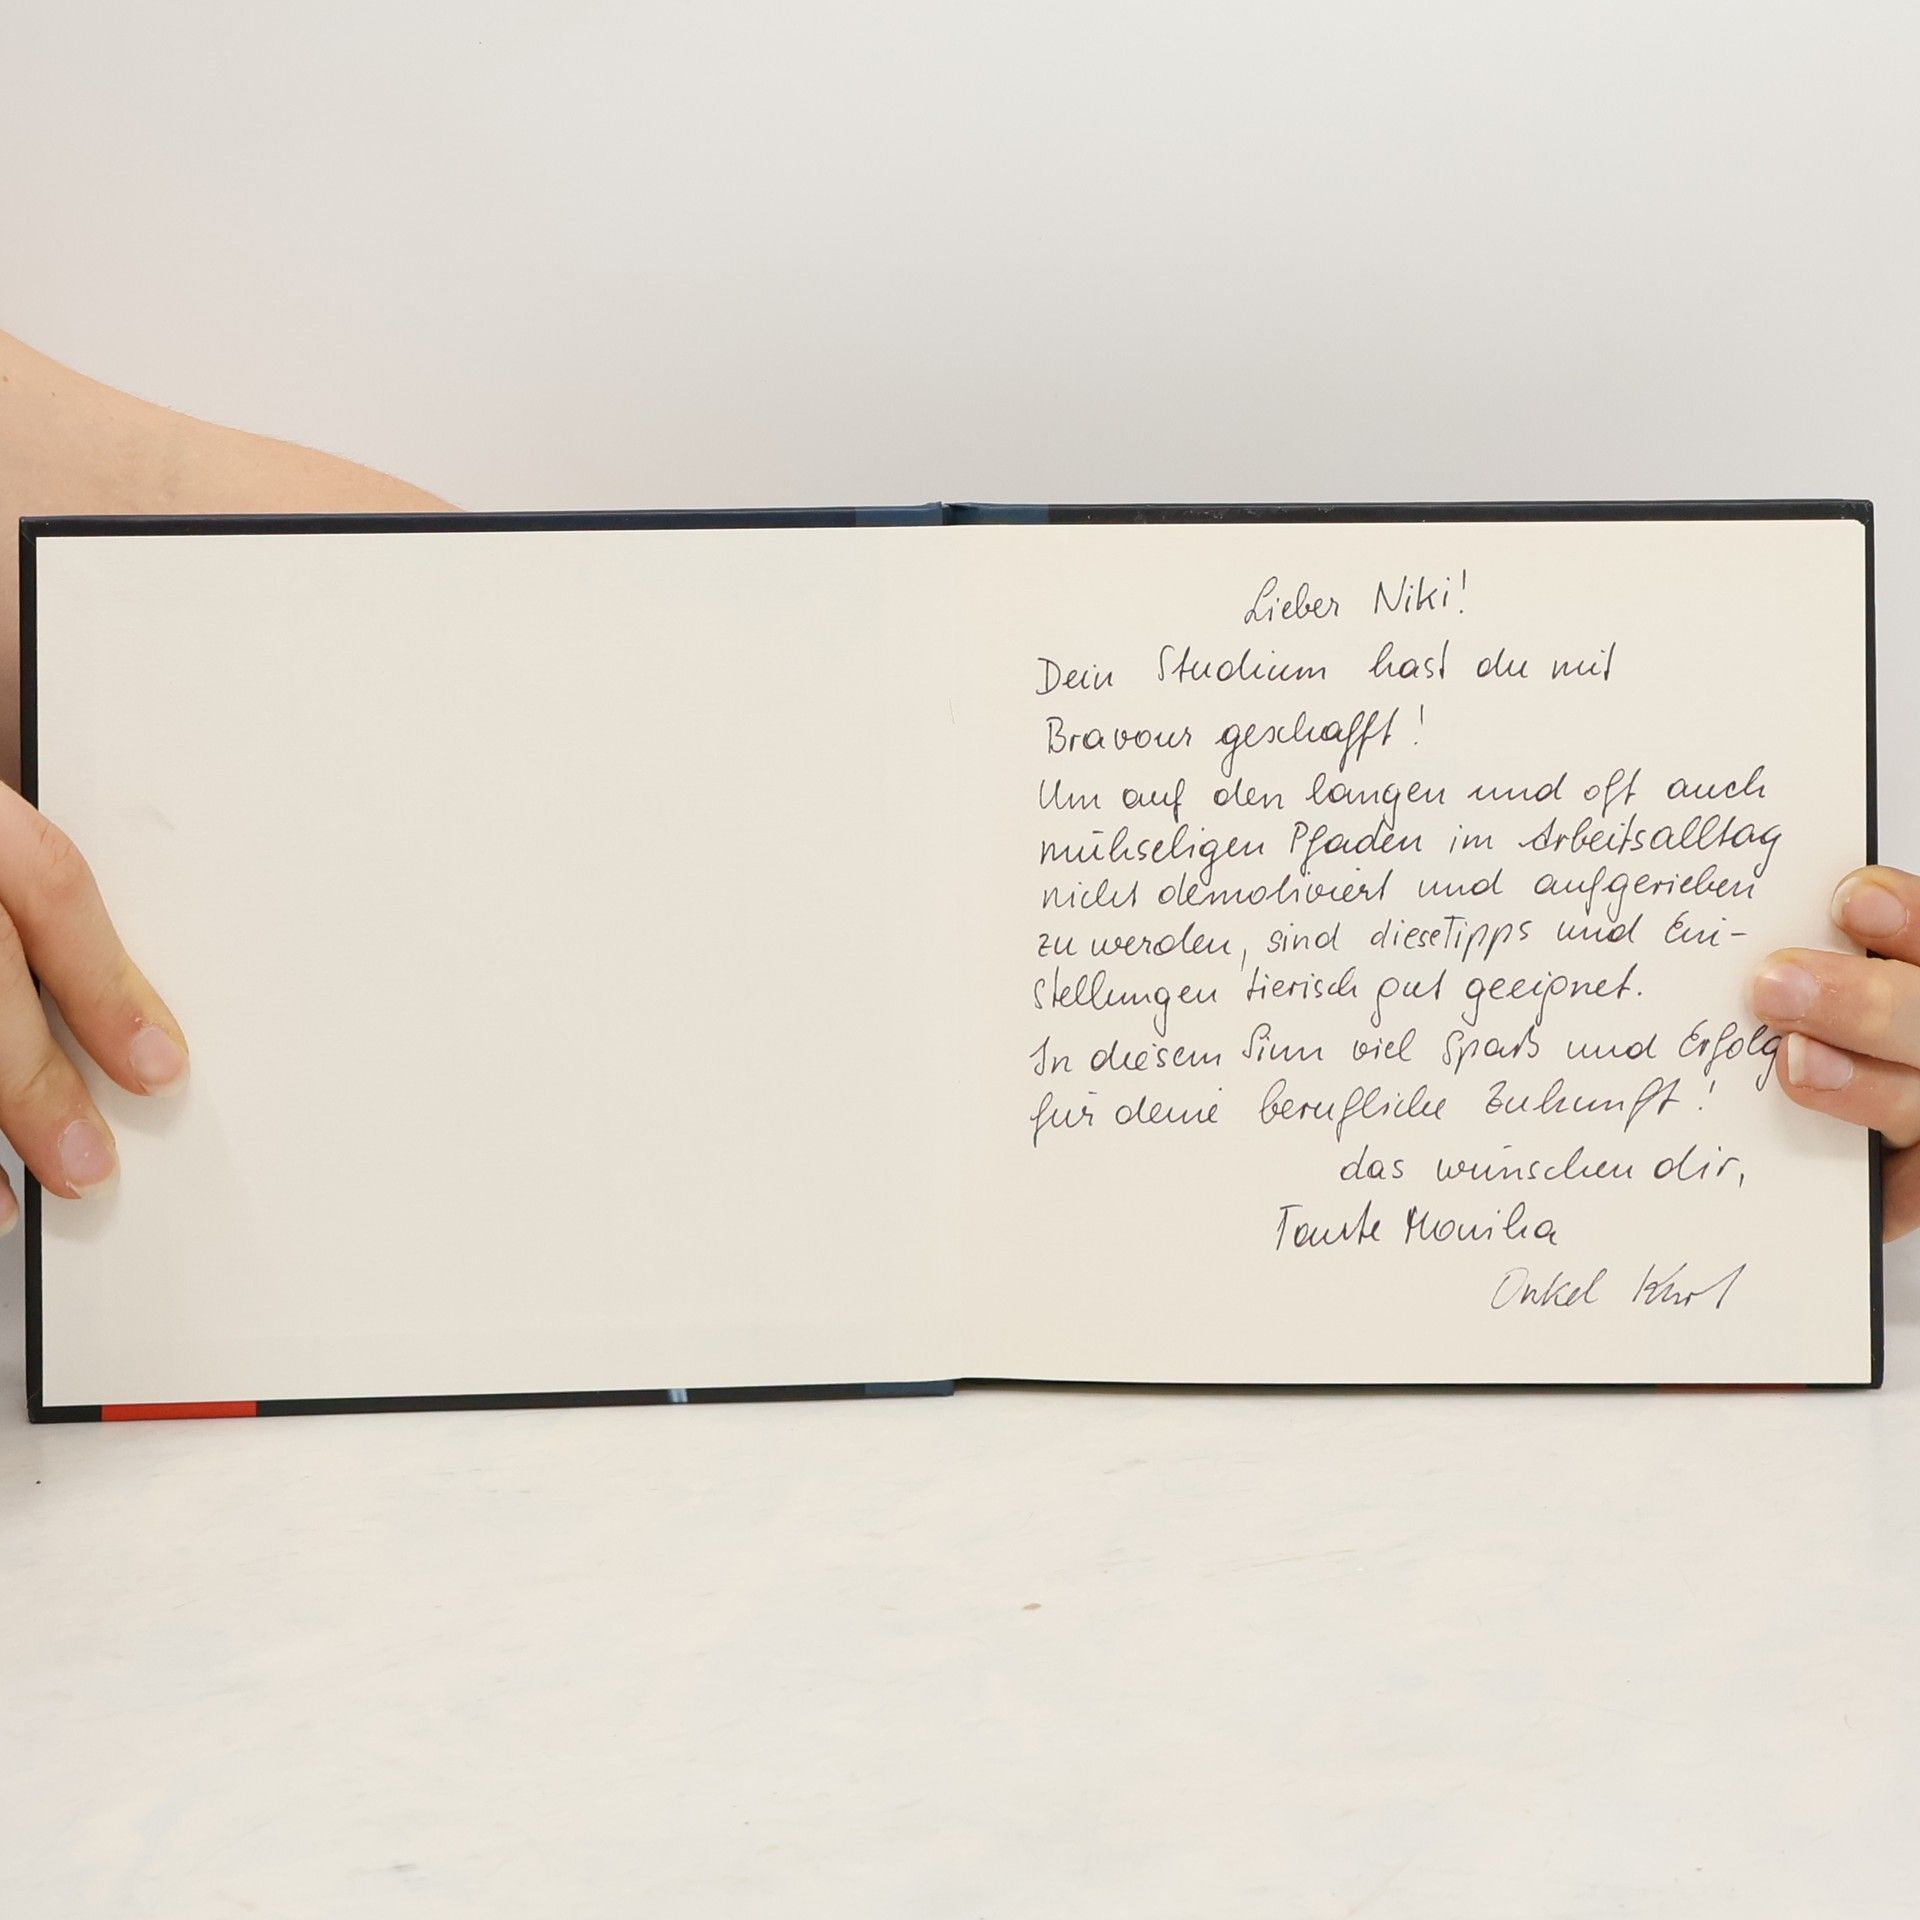 Lieber Niki!
Dein Studium hast du mit
Bravour geschafft!
Um auf den langen und oft auch
mühseligen Pfaden im Arbeitsalltag
nicht demotiviert und aufgerieben
zu werden, sind diese Tipps und Ein-
stellungen tierisch gut geeignet.
In diesem Sinn viel Spaß und Erfolg
für deine berufliche Zukunft!
das wünschen dir,
Tante Monika
Onkel